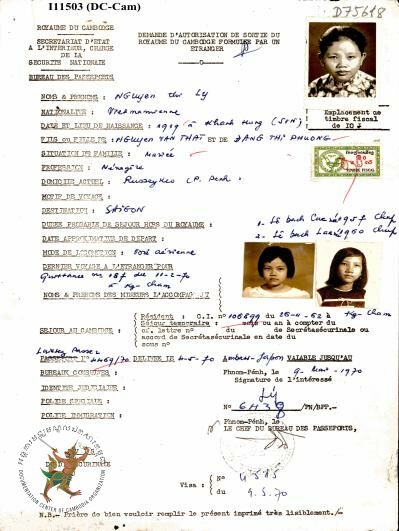 111503 (DC-Cam)
D75618
ROYAUME DU CAMBODGE
SECRETARIAT D'ETAT
A L'INTERIEUR, CHARGE
DE LA
SECURITE NATIONALE
BUREAU DES PASSEPORTS
DEMANDE D'AUTORISATION DE SORTIE DU
ROYAUME DU CAMBODGE FORMULEE PAR UN
ETRANGER
Emplacement de
timbre fiscal
de 10
NOMS & PRENOMS : NGUYEN Thi LY
NATIONALITE : Vietnamienne
DATE ET LIEU DE NAISSANCE : 1919 à Khanh Hung (SVN)
FILS ou FILLE DE : NGUYEN VAN THAI ET DE DANG THI PHUONG
SITUATION DE FAMILLE : Mariée
PROFESSION : Ménagère
DOMICILE ACTUEL : Russeykeo (P. Penh)
MOTIF DE VOYAGE :
DESTINATION : SAIGON
DUREE PROBABLE DE SEJOUR HORS DU ROYAUME :
DATE APPROXIMATIVE DE DEPART :
MODE DE LOCOMOTION : Voie aérienne
DERNIER VOYAGE A L'ETRANGER POUR
1-
2-
Quittance no 187 du 11-2-70
à Kg-Cham
NOMS & PRENOMS DES MINEURS L'ACCOMPAGNANT
SEJOUR AU CAMBODGE :
Résident : C.I. no 108699 du 28-4-62 à Kg-Cham
Séjour temporaire : ou an à compter du
cf. lettre no du de Secrétasécurinale ou
accord de Secrétasécurinale en date du
sous no
PASSEPORT No 4469/70 DELIVRE LE 4-5-70 Ambass. Japon VALABLE JUSQU'AU
BUREAU CONSULTES :
Phnom-Penh, le 9 1970
Signature de l'intéressé
IDENTITE JUDICIAIRE :
Lý
POLICE SPECIALE :
No 6439 /PN/BPP.-
POLICE IMMIGRATION :
Phnom-Pénh, le
LE CHEF DU BUREAU DES PASSEPORTS,
DOCUMENTATION CENTER OF CAMBODIA ORGANIZATION
Visa : No 4585
du 9.5.70
N.B.- Prière de bien vouloir remplir le présent imprimé très lisiblement./-